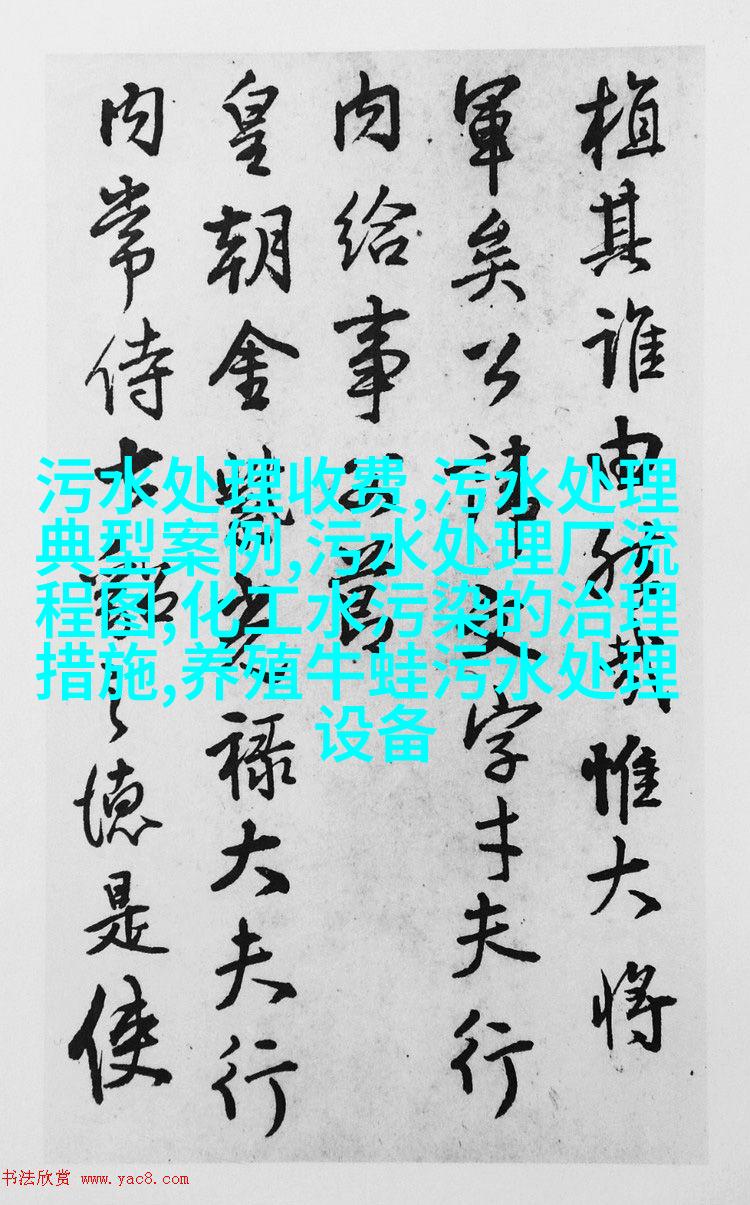 植其誰由惟大将
軍矣公諱文字才夫行
内給事
皇朝金紫光禄大夫行
内常侍德是使
污水处理收费,污水处理
典型案例,污水处理厂流
程图,化工水污染的治理
措施,养殖牛蛙污水处理
设备
书法欣赏 www.yac8.com